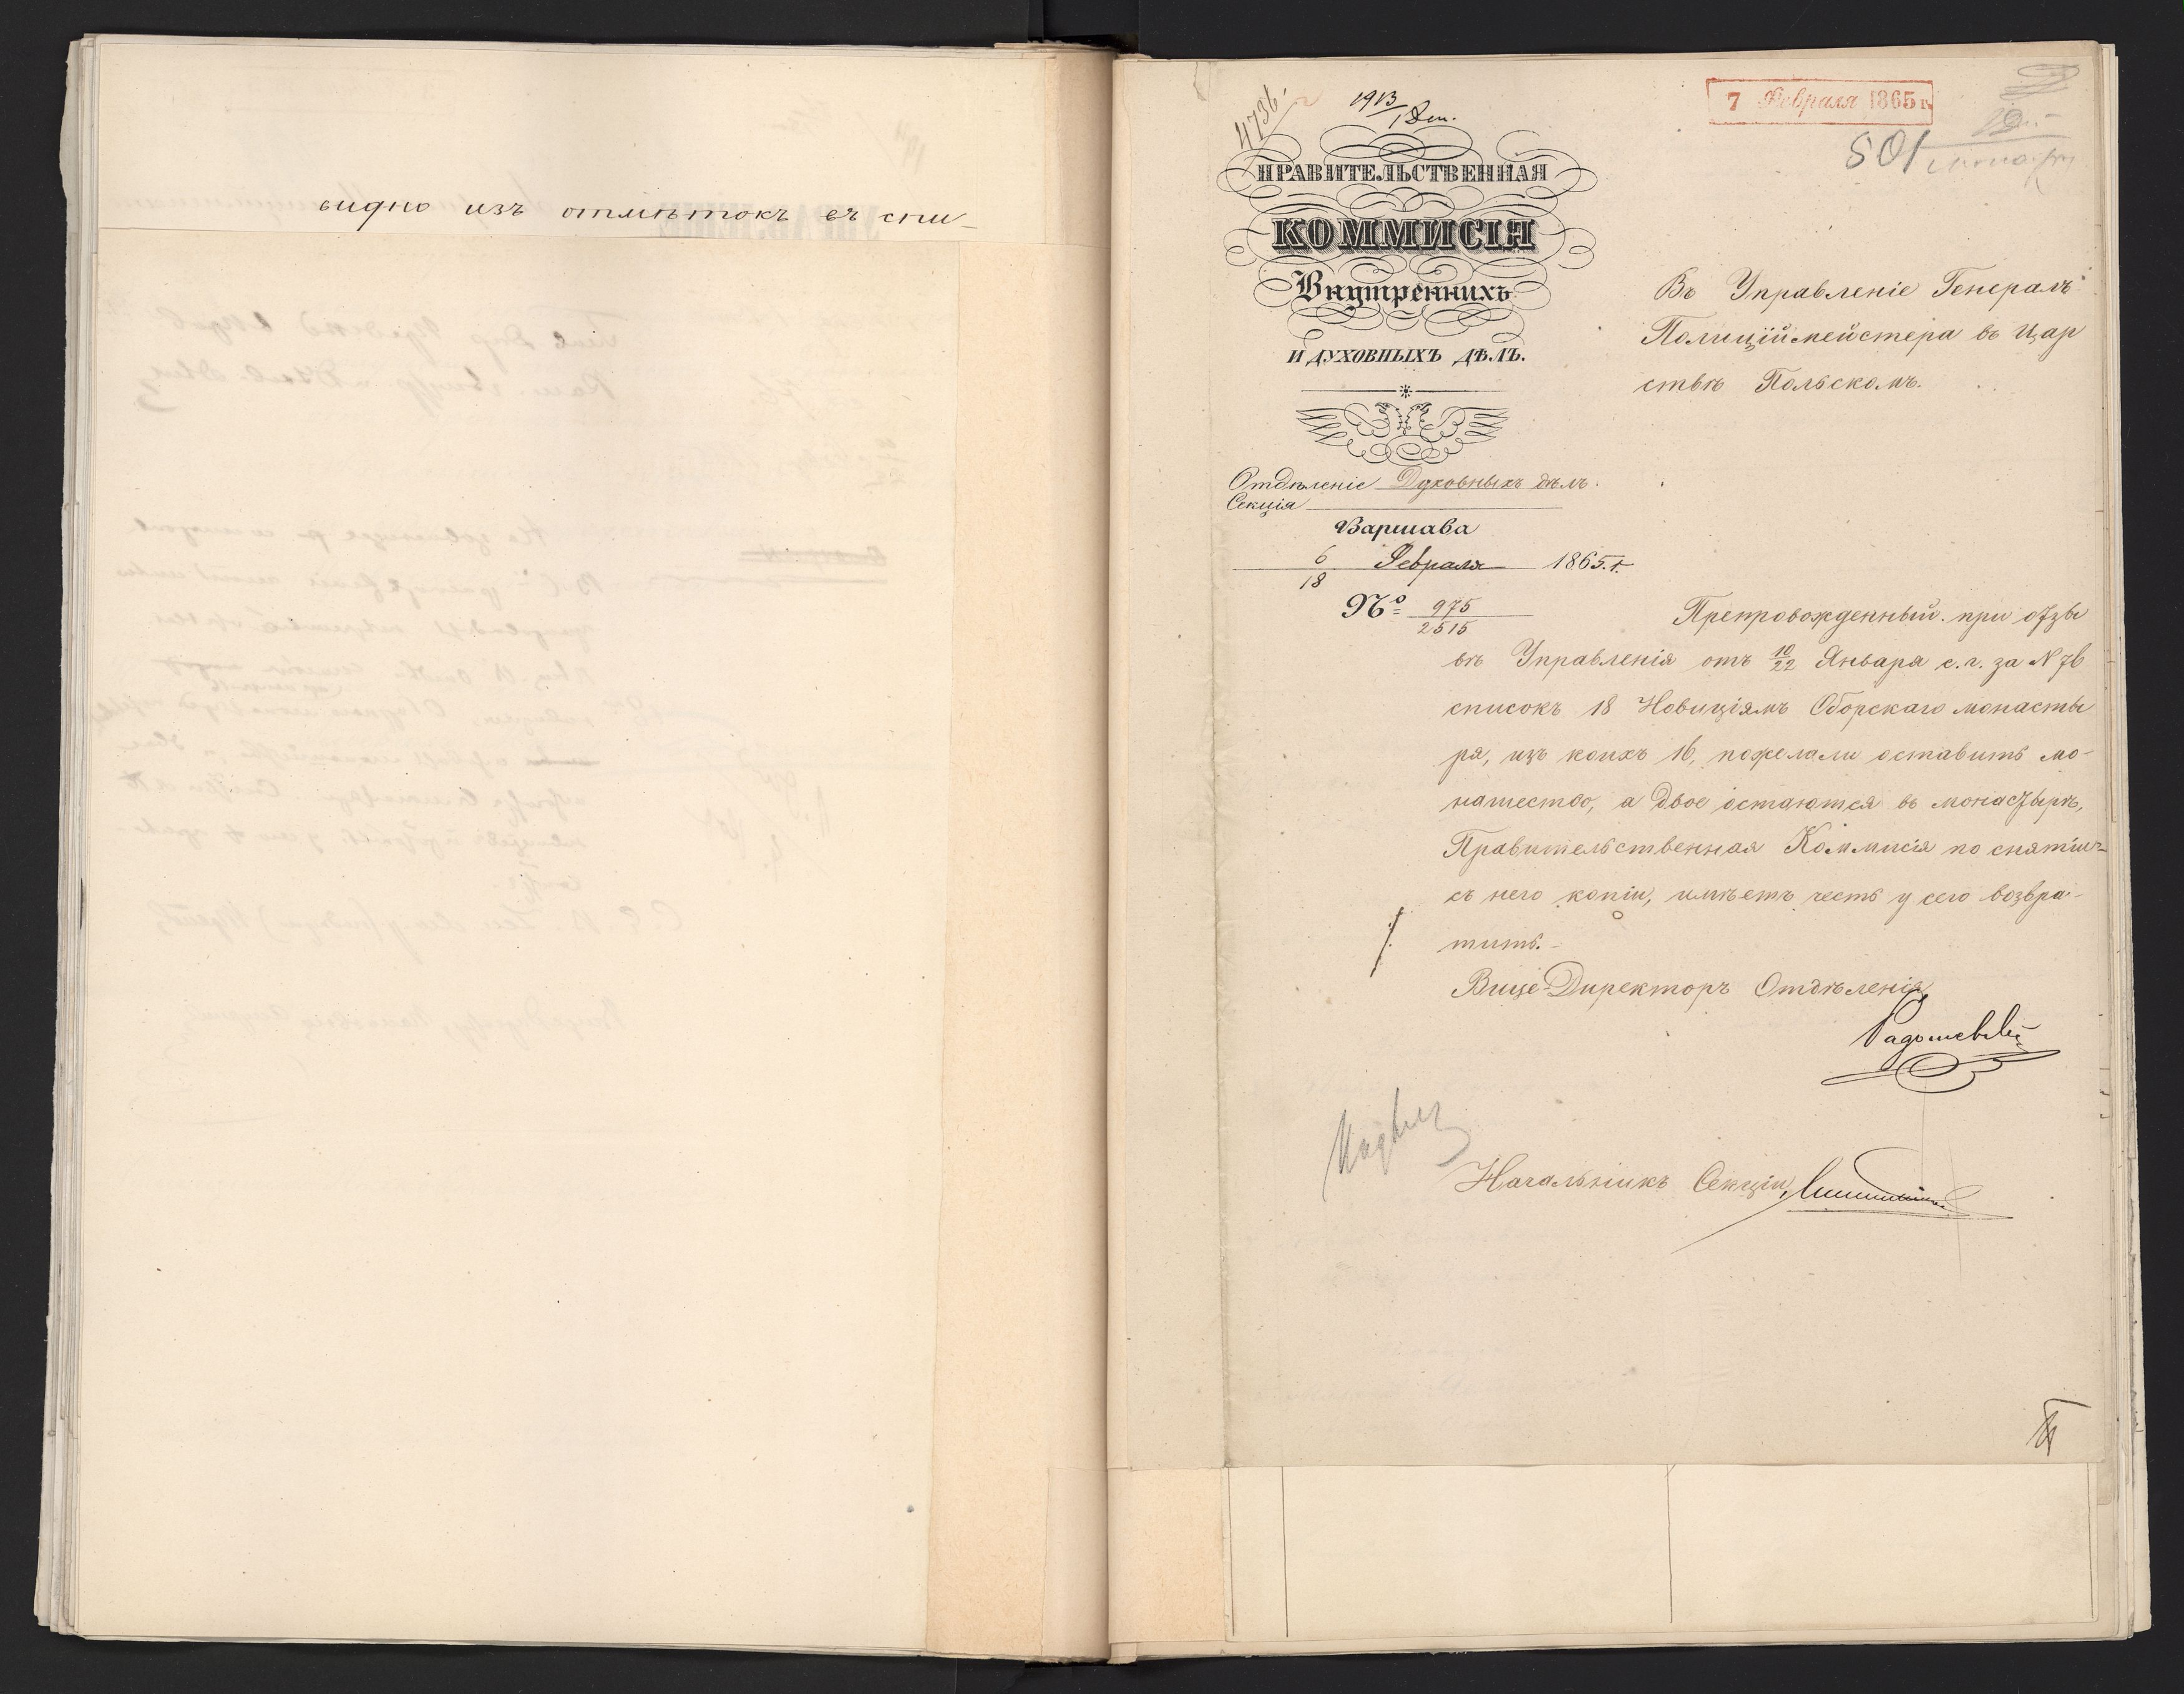 видно изъ отмѣтокъ въ спи-
4736.
1913
7 Февраля 1865 г.
501
ПРАВИТЕЛЬСТВЕННАЯ
КОММИСІЯ
Внутреннихъ
И ДУХОВНЫХЪ ДѢЛЪ.
Отдѣленіе Духовныхъ дѣлъ.
Секція
Варшава
6/18 Февраля 1865.г.
№ 975/2515
Въ Управленіе Генералъ
Полиціймейстера въ Цар
ствѣ Польскомъ.
Препровожденный при отзы
вѣ Управленія отъ 10/22 Января с.г. за N 76
списокъ 18 Новиціямъ Оборскаго монасты
ря, изъ коихъ 16, пожелали оставить мо-
нашество, а двое остаются въ монастырѣ,
Правительственная Коммисія по снятіи
съ него копіи, имѣетъ честь у сего возвра-
тить.-
Вице-Директоръ Отдѣленія
Начальникъ Секціи,